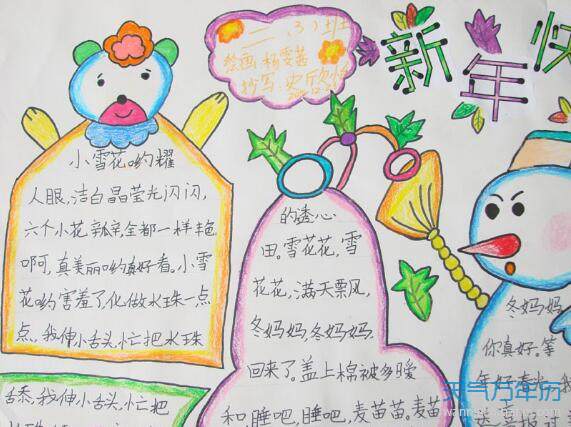 二、(3)班
绘画:杨雯茜
抄写:史欣怡
新年快
小雪花哟耀
人眼,洁白晶莹光闪闪,
六个小花瓣亲,全都一样艳
啊呵,真美丽哟真好看。小雪
花哟害羞了,化做水珠一点
点、我伸小舌头,忙把水珠
舌忝,我伸小舌头,忙把
的透心
田。雪花花,雪
花花,满天票风,
冬妈妈,冬妈妈,
回来了。盖上棉被多暖
和,睡吧,睡吧,麦苗苗。麦苗
冬妈妈
你真好。等
天气万年历